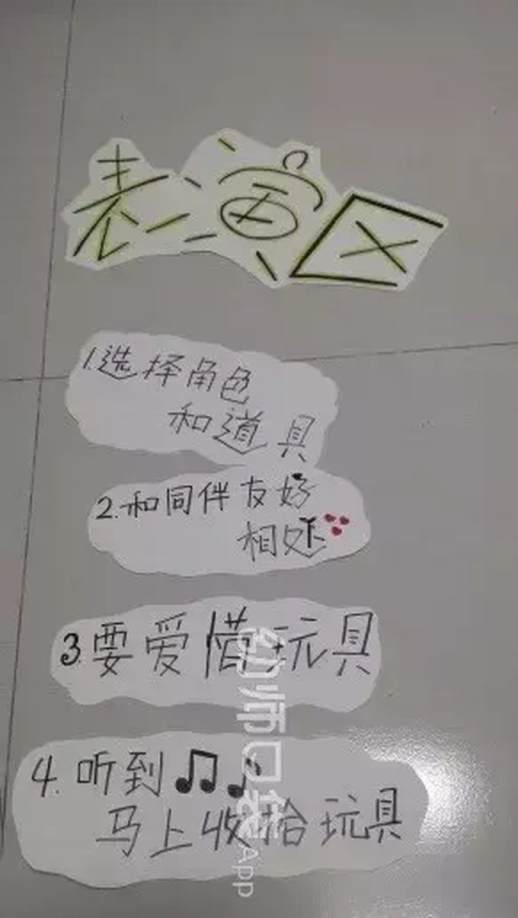 表演区
1.选择角色
和道具
2.和同伴友好
相处
3.要爱惜玩具
4.听到🎵🎵
马上收拾玩具
幼师口袋App